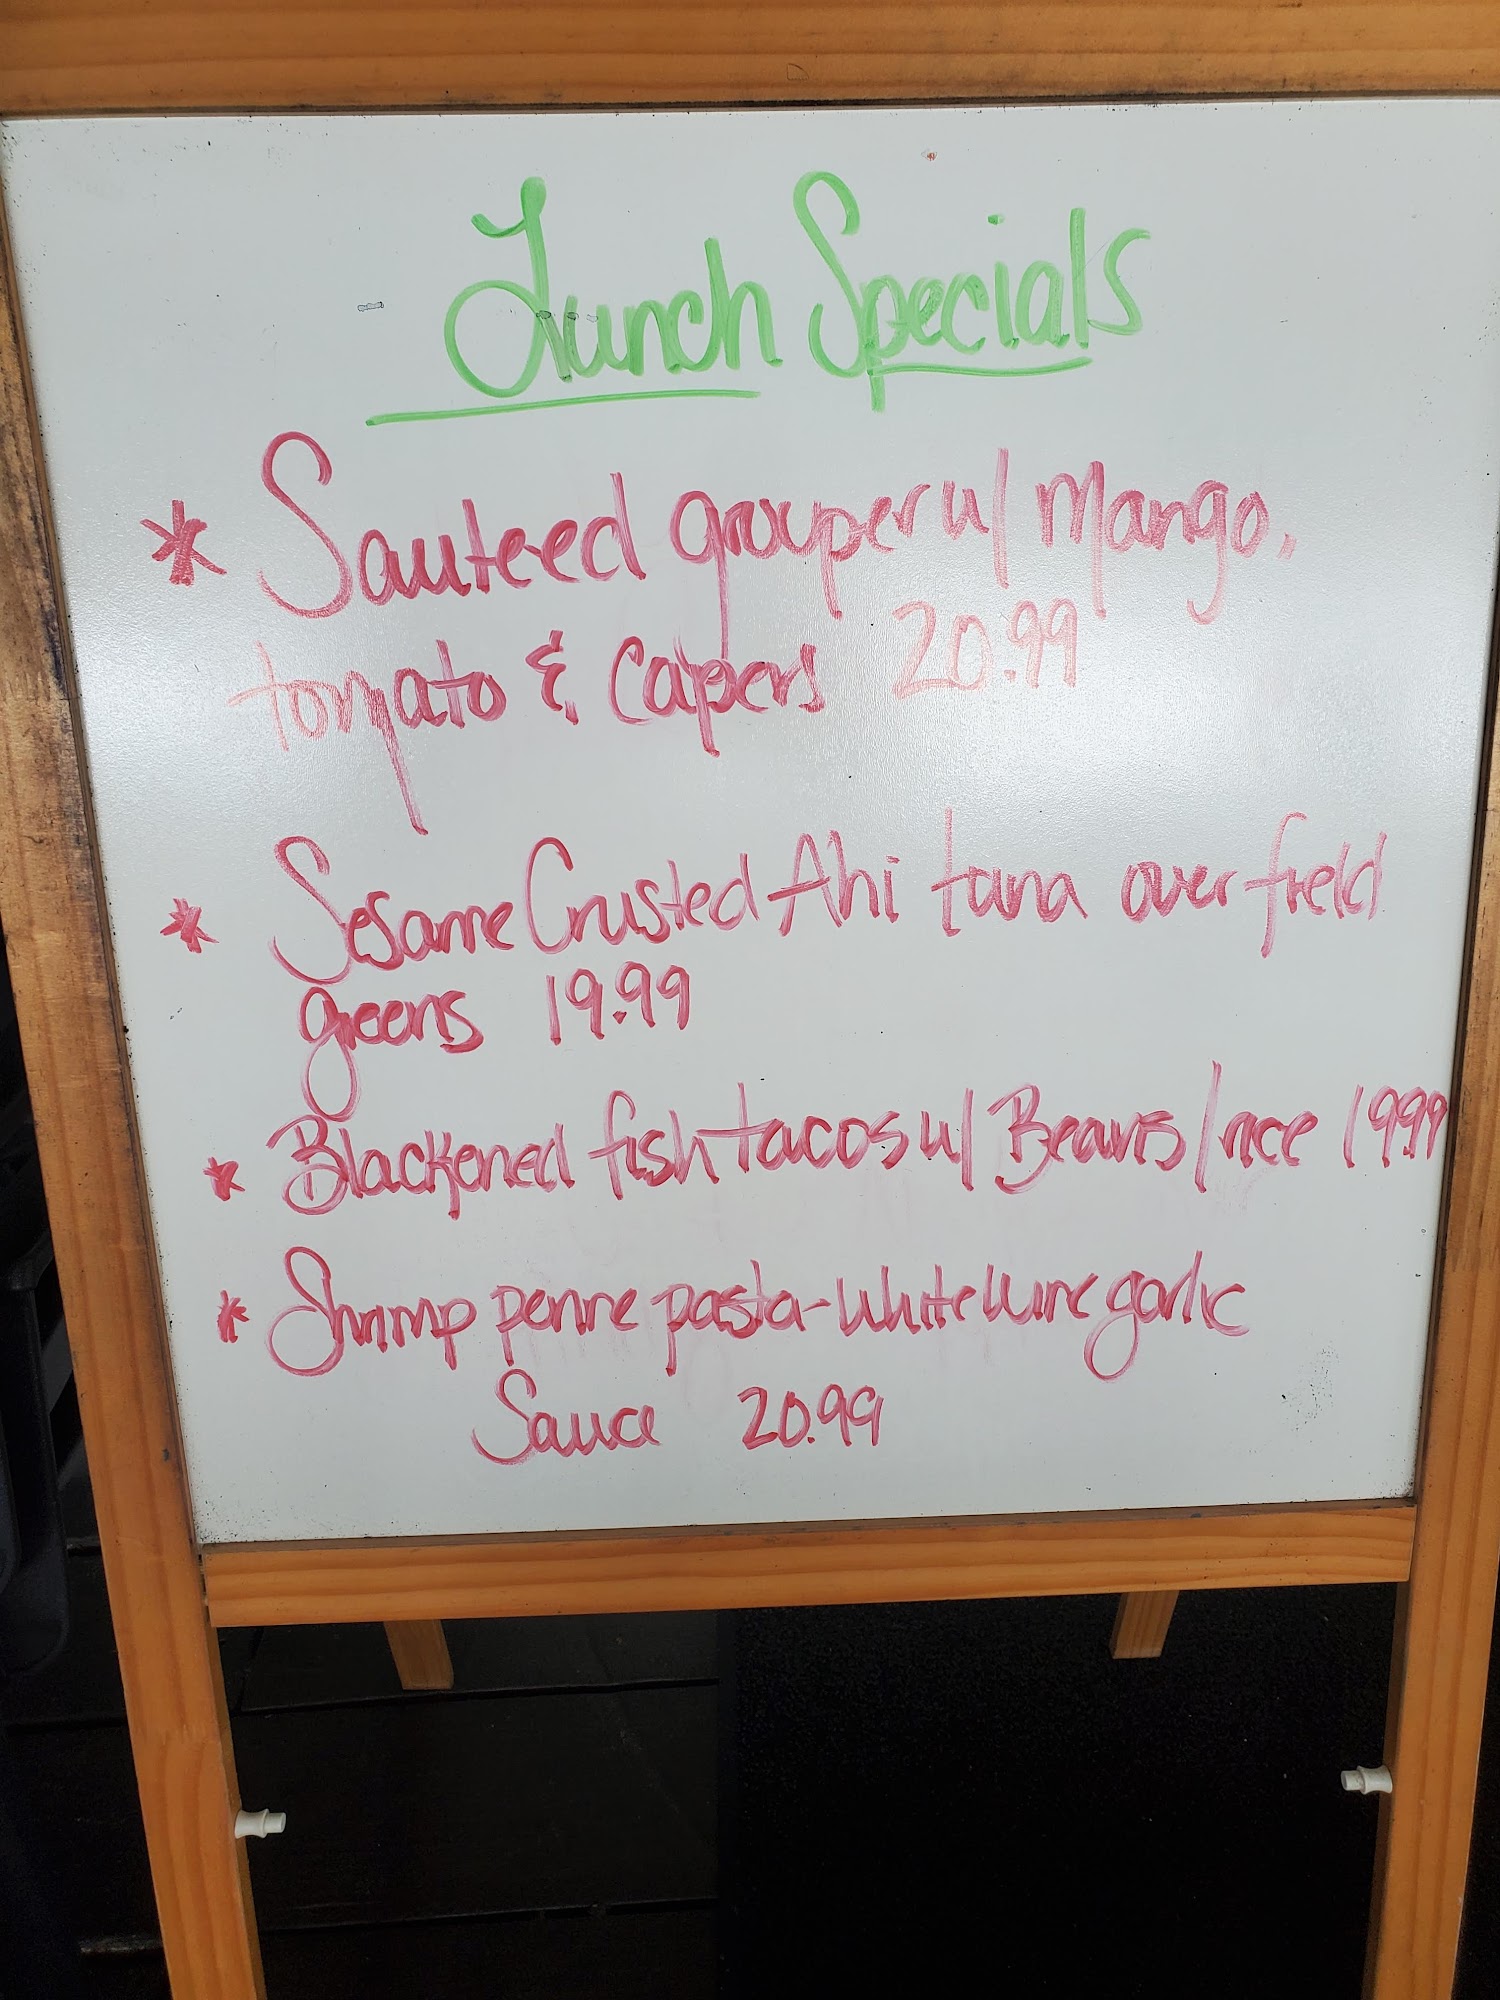 Lunch Specials
* Sauteed grouper w/ mango,
tomato & capers 20.99
* Sesame Crusted Ahi tuna over field
greens 19.99
* Blackened fish tacos w/ Beans/rice 19.99
* Shrimp penne pasta - white wine garlic
Sauce 20.99